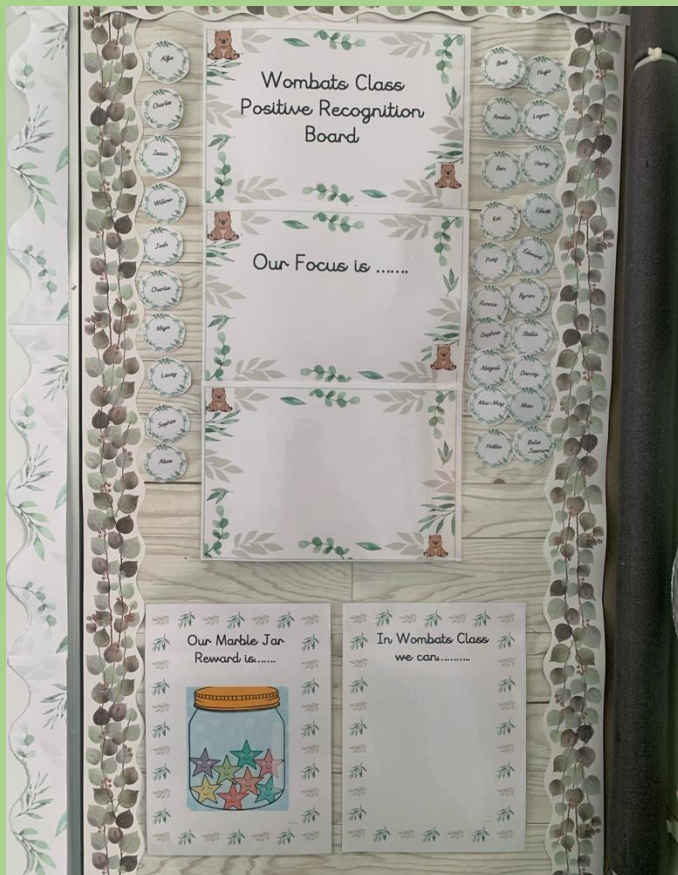 Wombats Class
Positive Recognition
Board
Our Focus is .......
Alfie
Charlie
Isaac
Willow
Josh
Charlie
Maya
Lacey
Sophia
Bodi
Hugo
Amelia
Logan
Ben
Harry
Kai
Elliott
Edward
Ronnie
Byron
Daphne
Stella
Abigail
Darcey
Nua-May
Hattie
Bella
Jasmin
Our Marble Jar
Reward is.......
In Wombats Class
we can..........